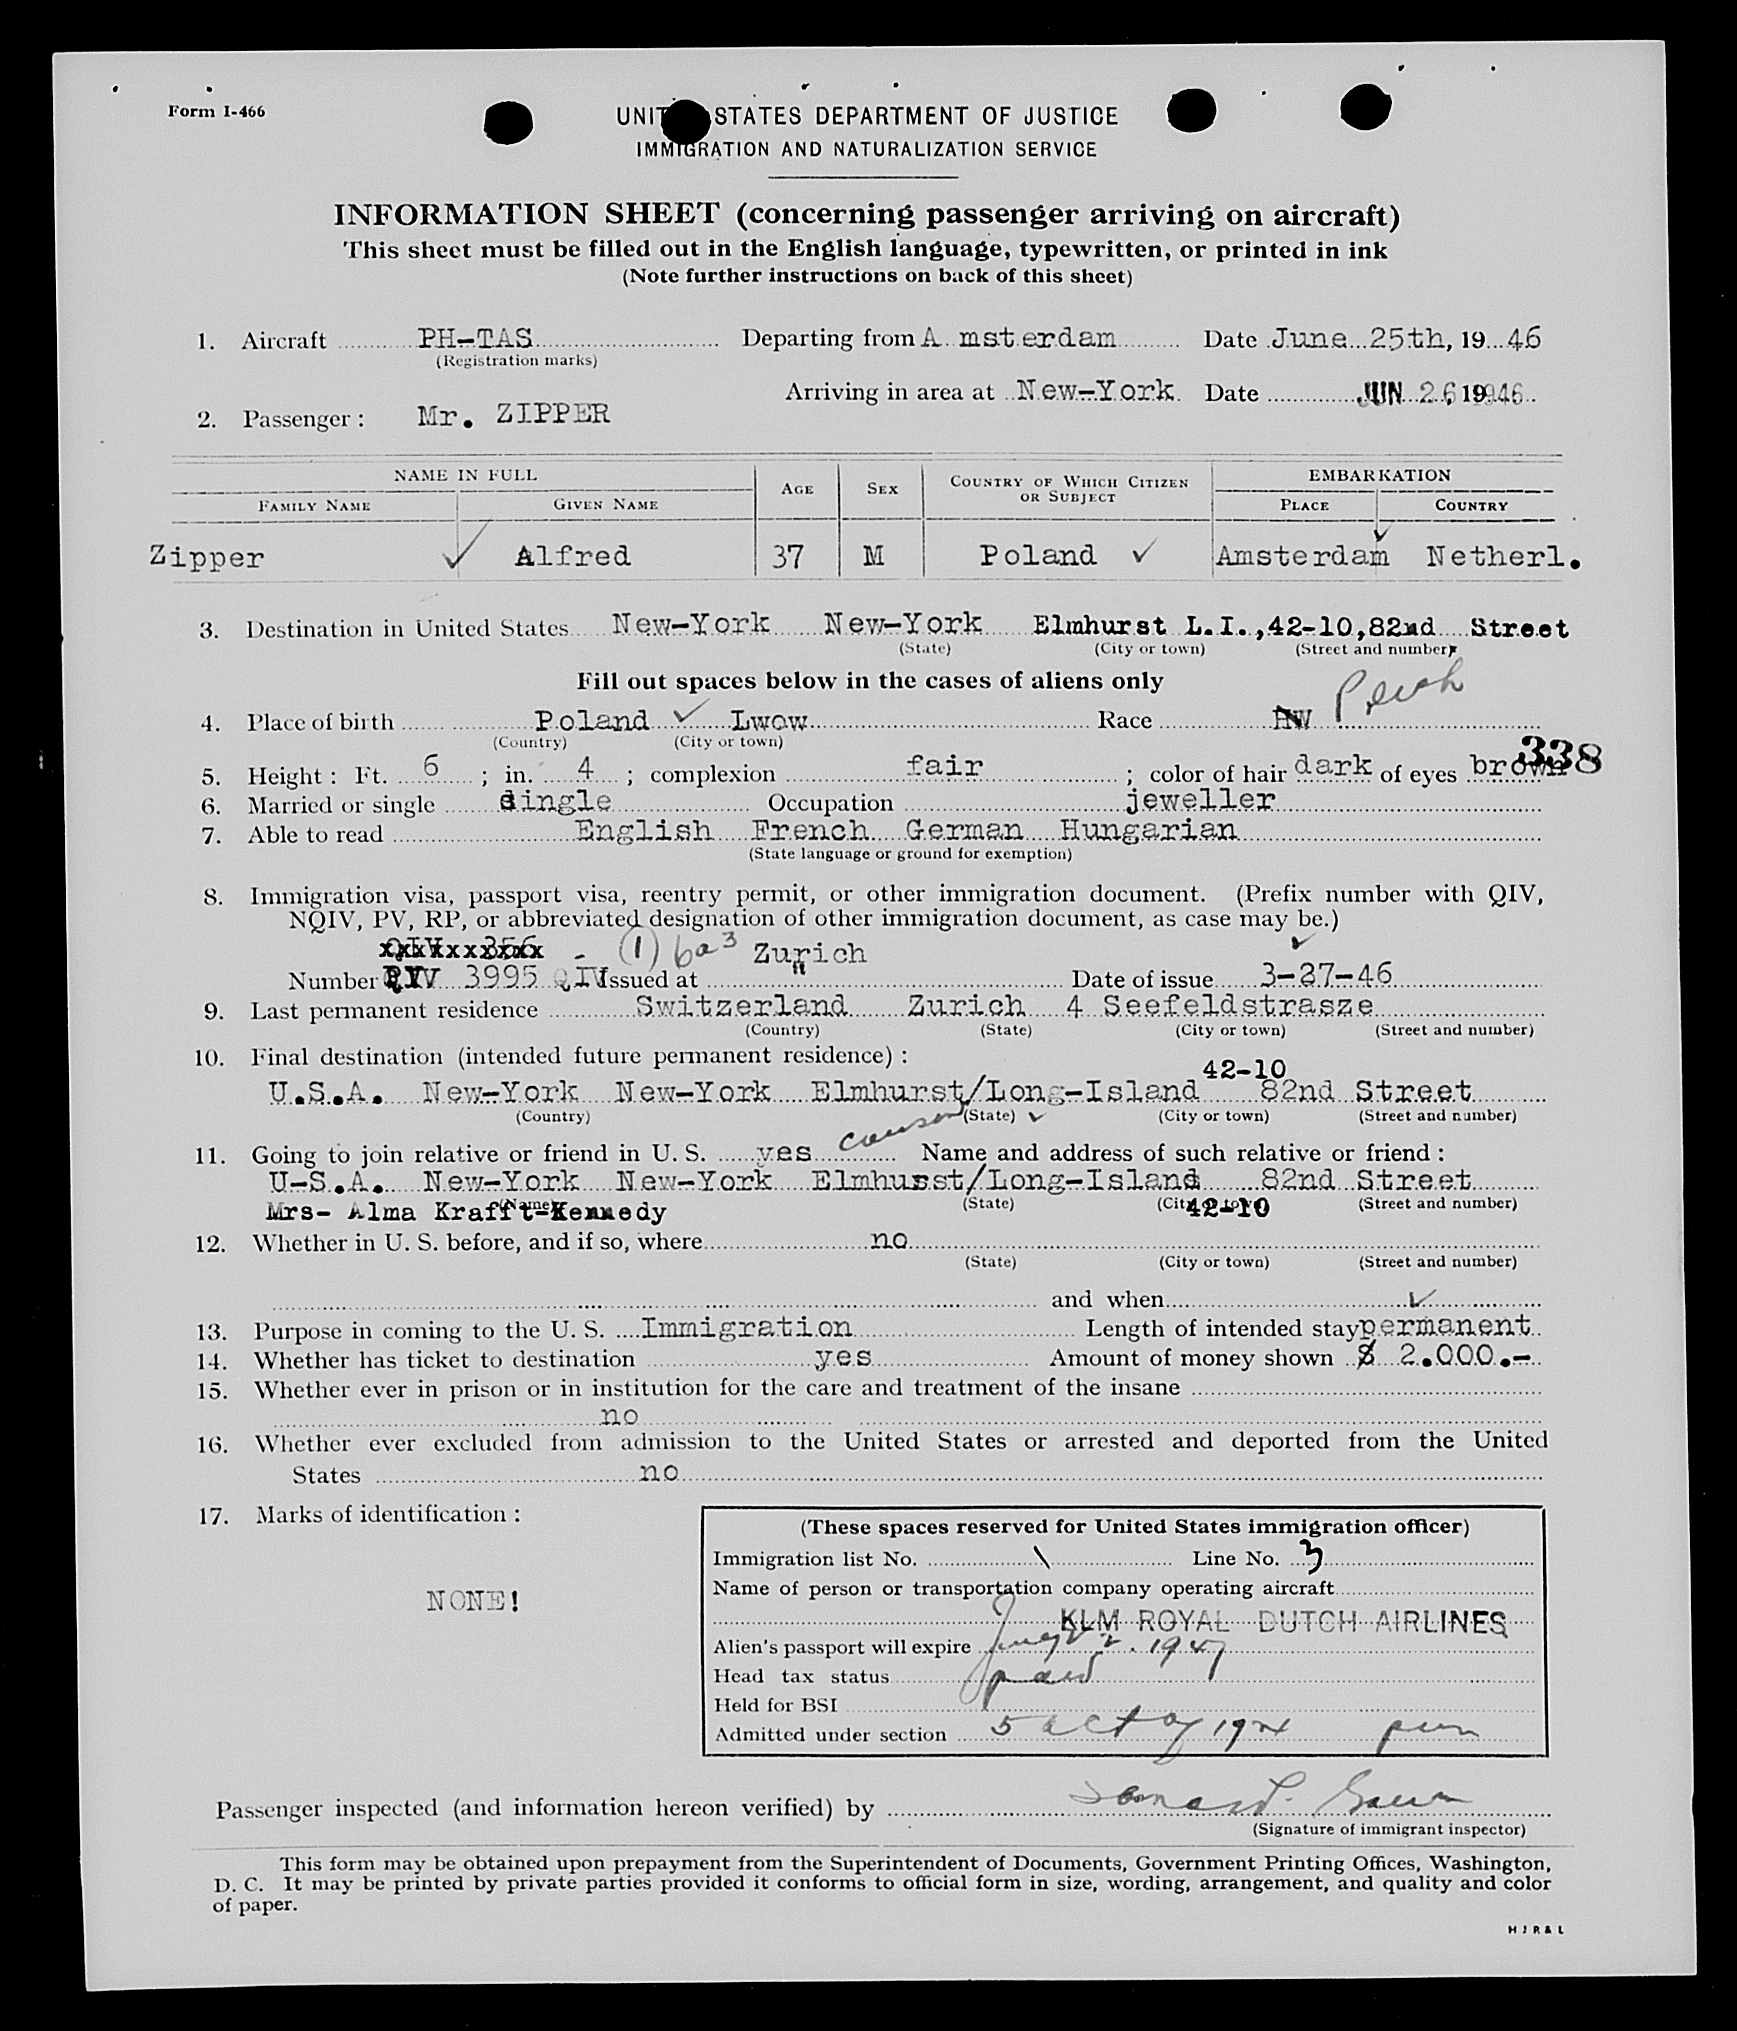 Form I-466
UNITED STATES DEPARTMENT OF JUSTICE
IMMIGRATION AND NATURALIZATION SERVICE
INFORMATION SHEET (concerning passenger arriving on aircraft)
This sheet must be filled out in the English language, typewritten, or printed in ink
(Note further instructions on back of this sheet)
1. Aircraft PH-TAS Departing from A msterdam Date June 25th, 19 46
(Registration marks)
Arriving in area at New-York Date JUN 26 1946
2. Passenger: Mr. ZIPPER
NAME IN FULL AGE SEX COUNTRY OF WHICH CITIZEN OR SUBJECT EMBARKATION
FAMILY NAME GIVEN NAME PLACE COUNTRY
Zipper Alfred 37 M Poland Amsterdam Netherl.
3. Destination in United States New-York New-York Elmhurst L.I.,42-10,82nd Street
(State) (City or town) (Street and number)
Fill out spaces below in the cases of aliens only
4. Place of birth Poland Lwow Race
(Country) (City or town)
338
5. Height: Ft. 6 ; in. 4 ; complexion fair ; color of hair dark of eyes brown
6. Married or single single Occupation jeweller
7. Able to read English French German Hungarian
(State language or ground for exemption)
8. Immigration visa, passport visa, reentry permit, or other immigration document. (Prefix number with QIV,
NQIV, PV, RP, or abbreviated designation of other immigration document, as case may be.)
(1) 6a3 Zurich
Number QIV 3995 QIV Issued at Date of issue 3-27-46
9. Last permanent residence Switzerland Zurich 4 Seefeldstrasze
(Country) (State) (City or town) (Street and number)
10. Final destination (intended future permanent residence):
42-10
U.S.A. New-York New-York Elmhurst/Long-Island 82nd Street
(Country) (State) (City or town) (Street and number)
11. Going to join relative or friend in U. S. yes cousin Name and address of such relative or friend:
U-S.A. New-York New-York Elmhusst/Long-Island 82nd Street
(Name) (State) (City or town) (Street and number)
Mrs- Alma Krafft-Kennedy 42-10
12. Whether in U. S. before, and if so, where no
(State) (City or town) (Street and number)
and when
13. Purpose in coming to the U. S. Immigration Length of intended stay permanent
14. Whether has ticket to destination yes Amount of money shown $ 2.000.-
15. Whether ever in prison or in institution for the care and treatment of the insane
no
16. Whether ever excluded from admission to the United States or arrested and deported from the United
States no
17. Marks of identification:
NONE!
(These spaces reserved for United States immigration officer)
Immigration list No. 1 Line No. 3
Name of person or transportation company operating aircraft
KLM ROYAL DUTCH AIRLINES
Alien's passport will expire 1947
Head tax status paid
Held for BSI
Admitted under section 5 act of 1924
Passenger inspected (and information hereon verified) by
(Signature of immigrant inspector)
This form may be obtained upon prepayment from the Superintendent of Documents, Government Printing Offices, Washington,
D. C. It may be printed by private parties provided it conforms to official form in size, wording, arrangement, and quality and color
of paper.
H J R & L